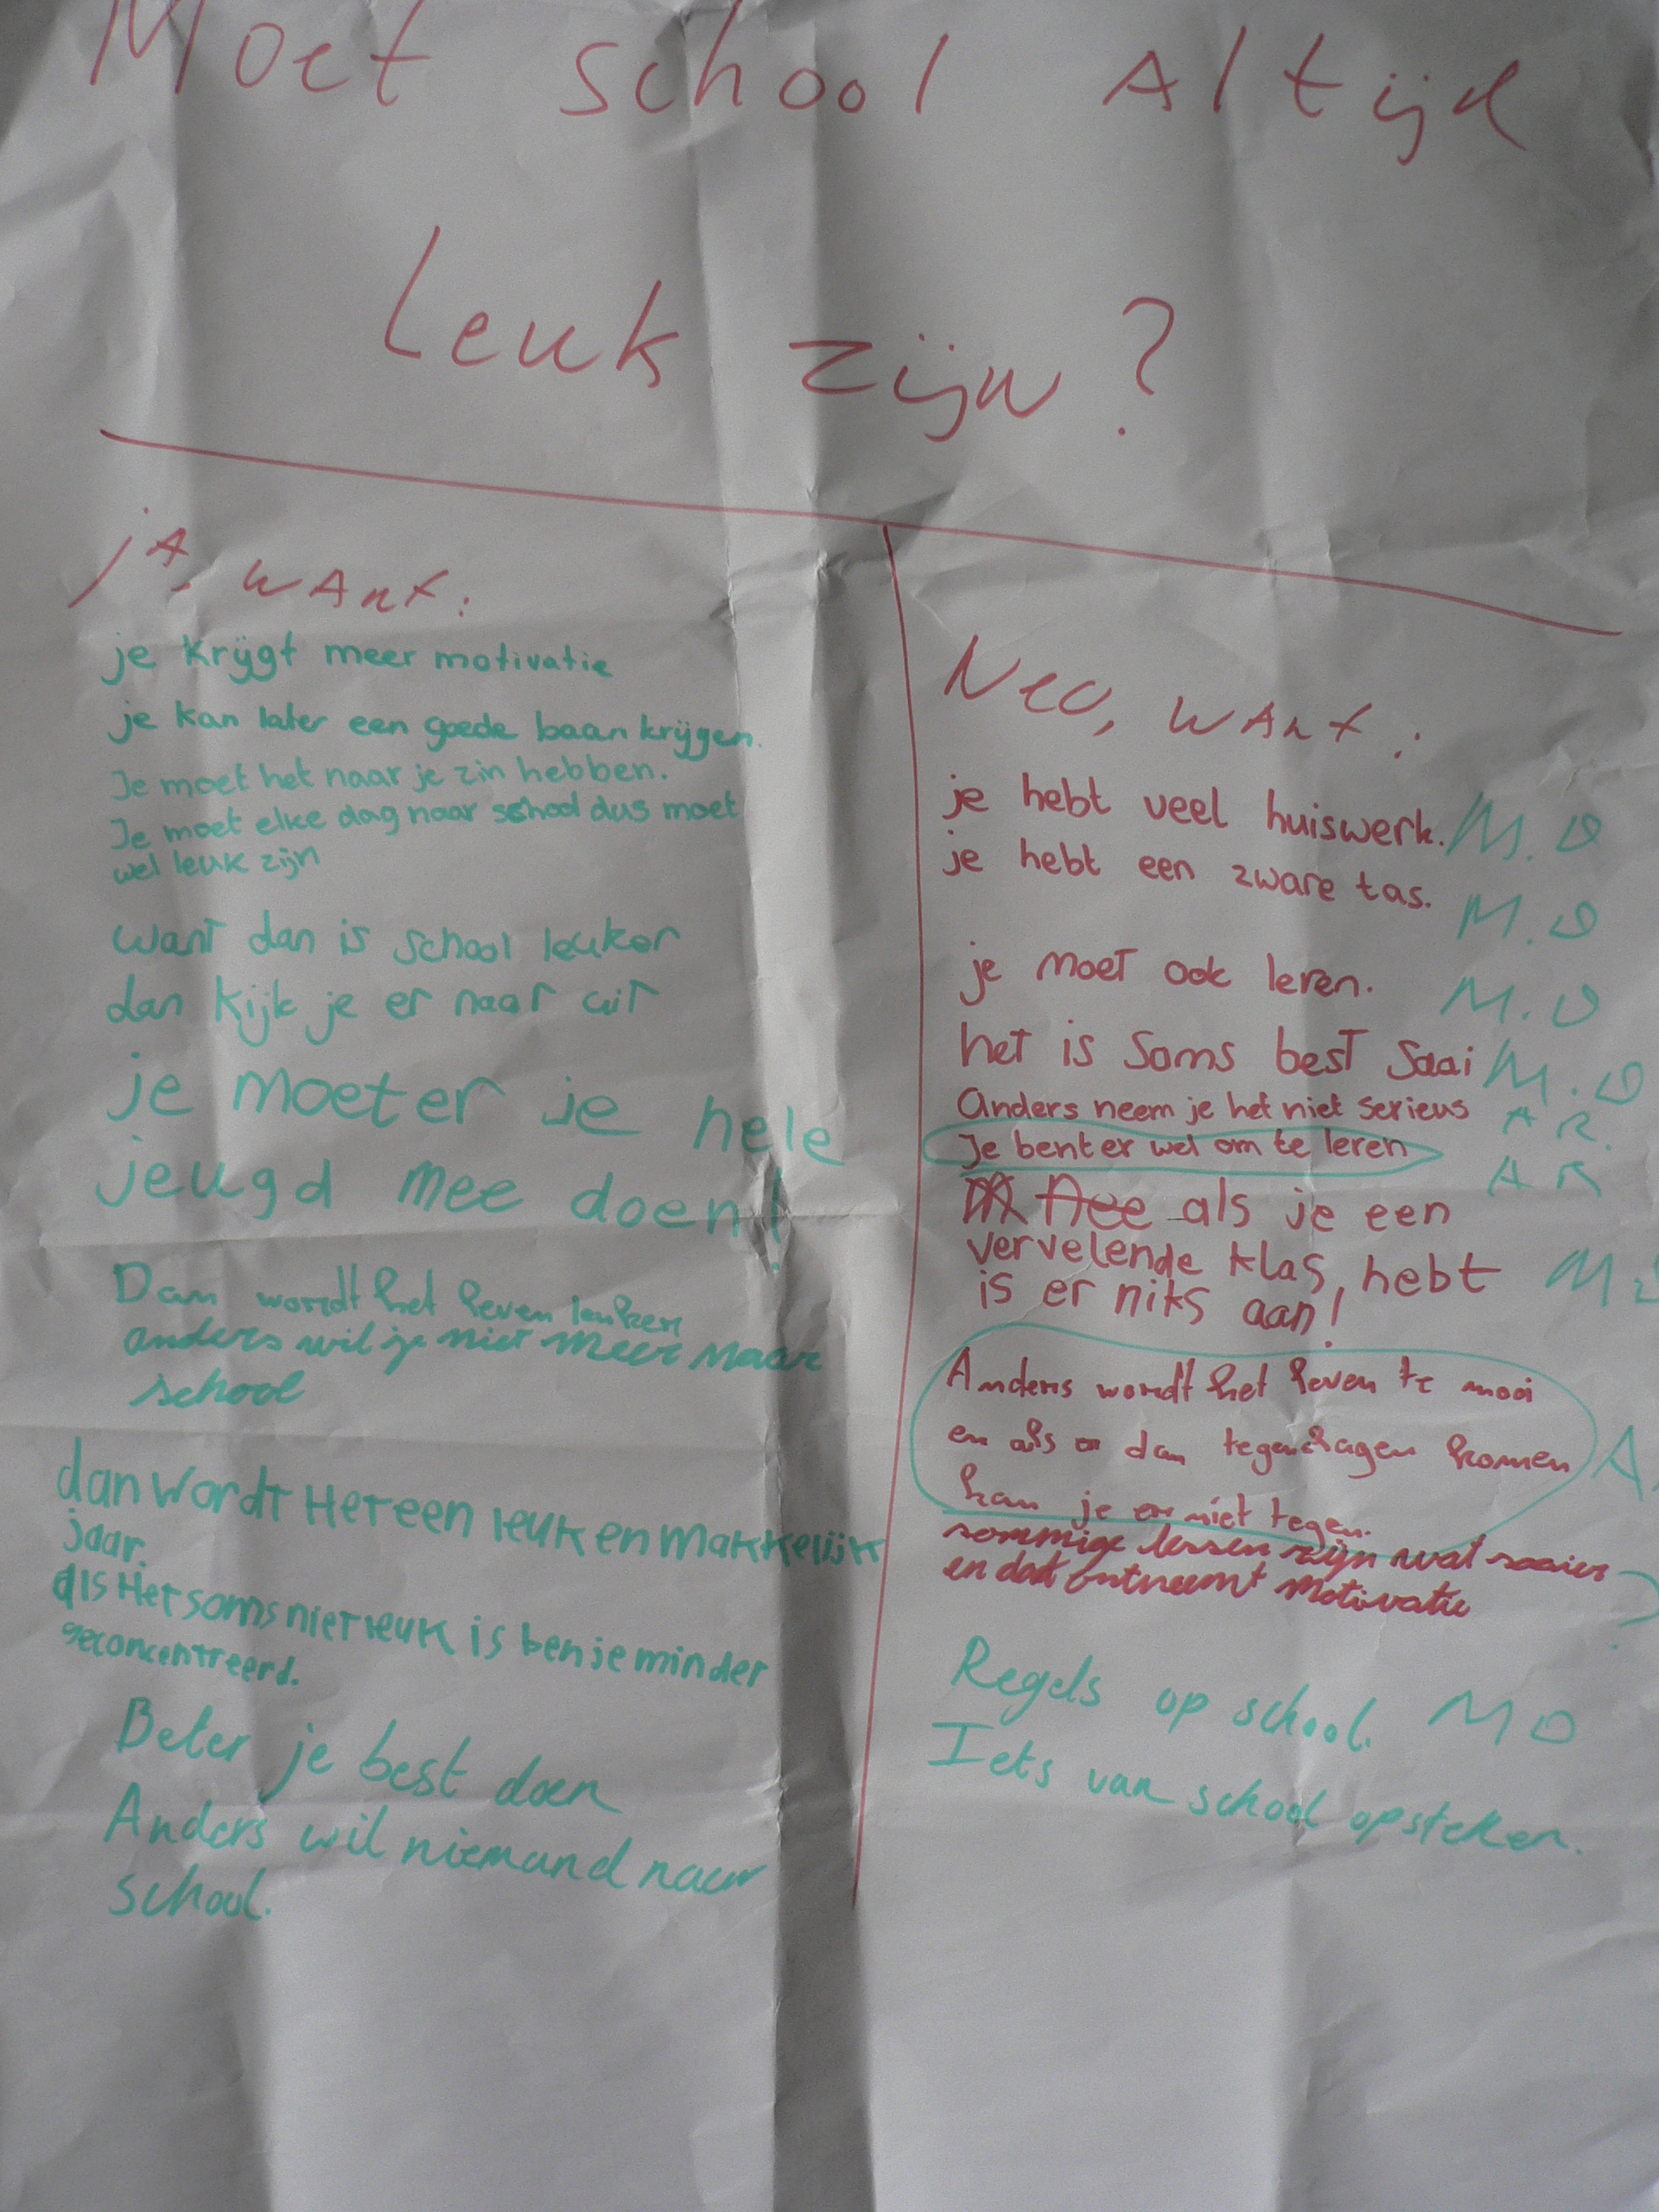 Moet school Altijd
Leuk zijn?
jA, wAnt:
je krijgt meer motivatie
je kan later een goede baan krijgen.
Je moet het naar je zin hebben.
Je moet elke dag naar school dus moet
wel leuk zijn
want dan is school leuker
dan kijk je er naar uit
je moet er je hele
jeugd mee doen!
Dan wordt het leven leuker
anders wil je niet meer naar
school
dan wordt Het een leuk en makkelijk
jaar.
als Het soms niet leuk is ben je minder
geconcentreerd.
Beter je best doen
Anders wil niemand naar
school.
Nee, wAnt:
je hebt veel huiswerk. M.O
je hebt een zware tas. M.O
je moet ook leren. M.O
het is soms best saai M.O
Anders neem je het niet serieus A R.
Je bent er wel om te leren A R
Nee als je een
vervelende klas, hebt M
is er niks aan!
Anders wordt het leven te mooi
en als er dan tegenslagen komen A
kan je er niet tegen.
sommige lessen zijn wat saaier
en dat ontneemt motivatie ?
Regels op school. M O
Iets van school opsteken.